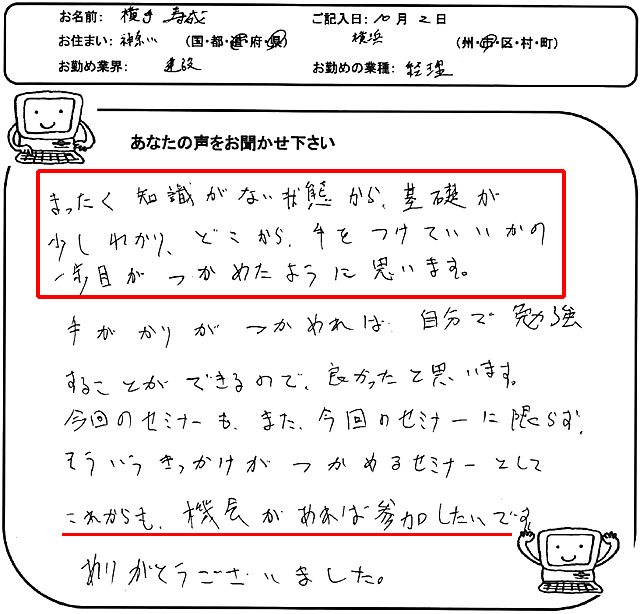 お名前: 横手 寿成 ご記入日: 10月2日
お住まい: 神奈川 (国・都・道・府・県) 横浜 (州・市・区・村・町)
お勤め業界: 建設 お勤めの業種: 経理
あなたの声をお聞かせ下さい
まったく知識がない状態から、基礎が
少しわかり、どこから、手をつけていいかの
一歩目がつかめたように思います。
手がかりがつかめれば、自分で勉強
することができるので、良かったと思います。
今回のセミナーも、また、今回のセミナーに限らず、
そういうきっかけがつかめるセミナーとして
これからも、機会があれば参加したいです
ありがとうございました。